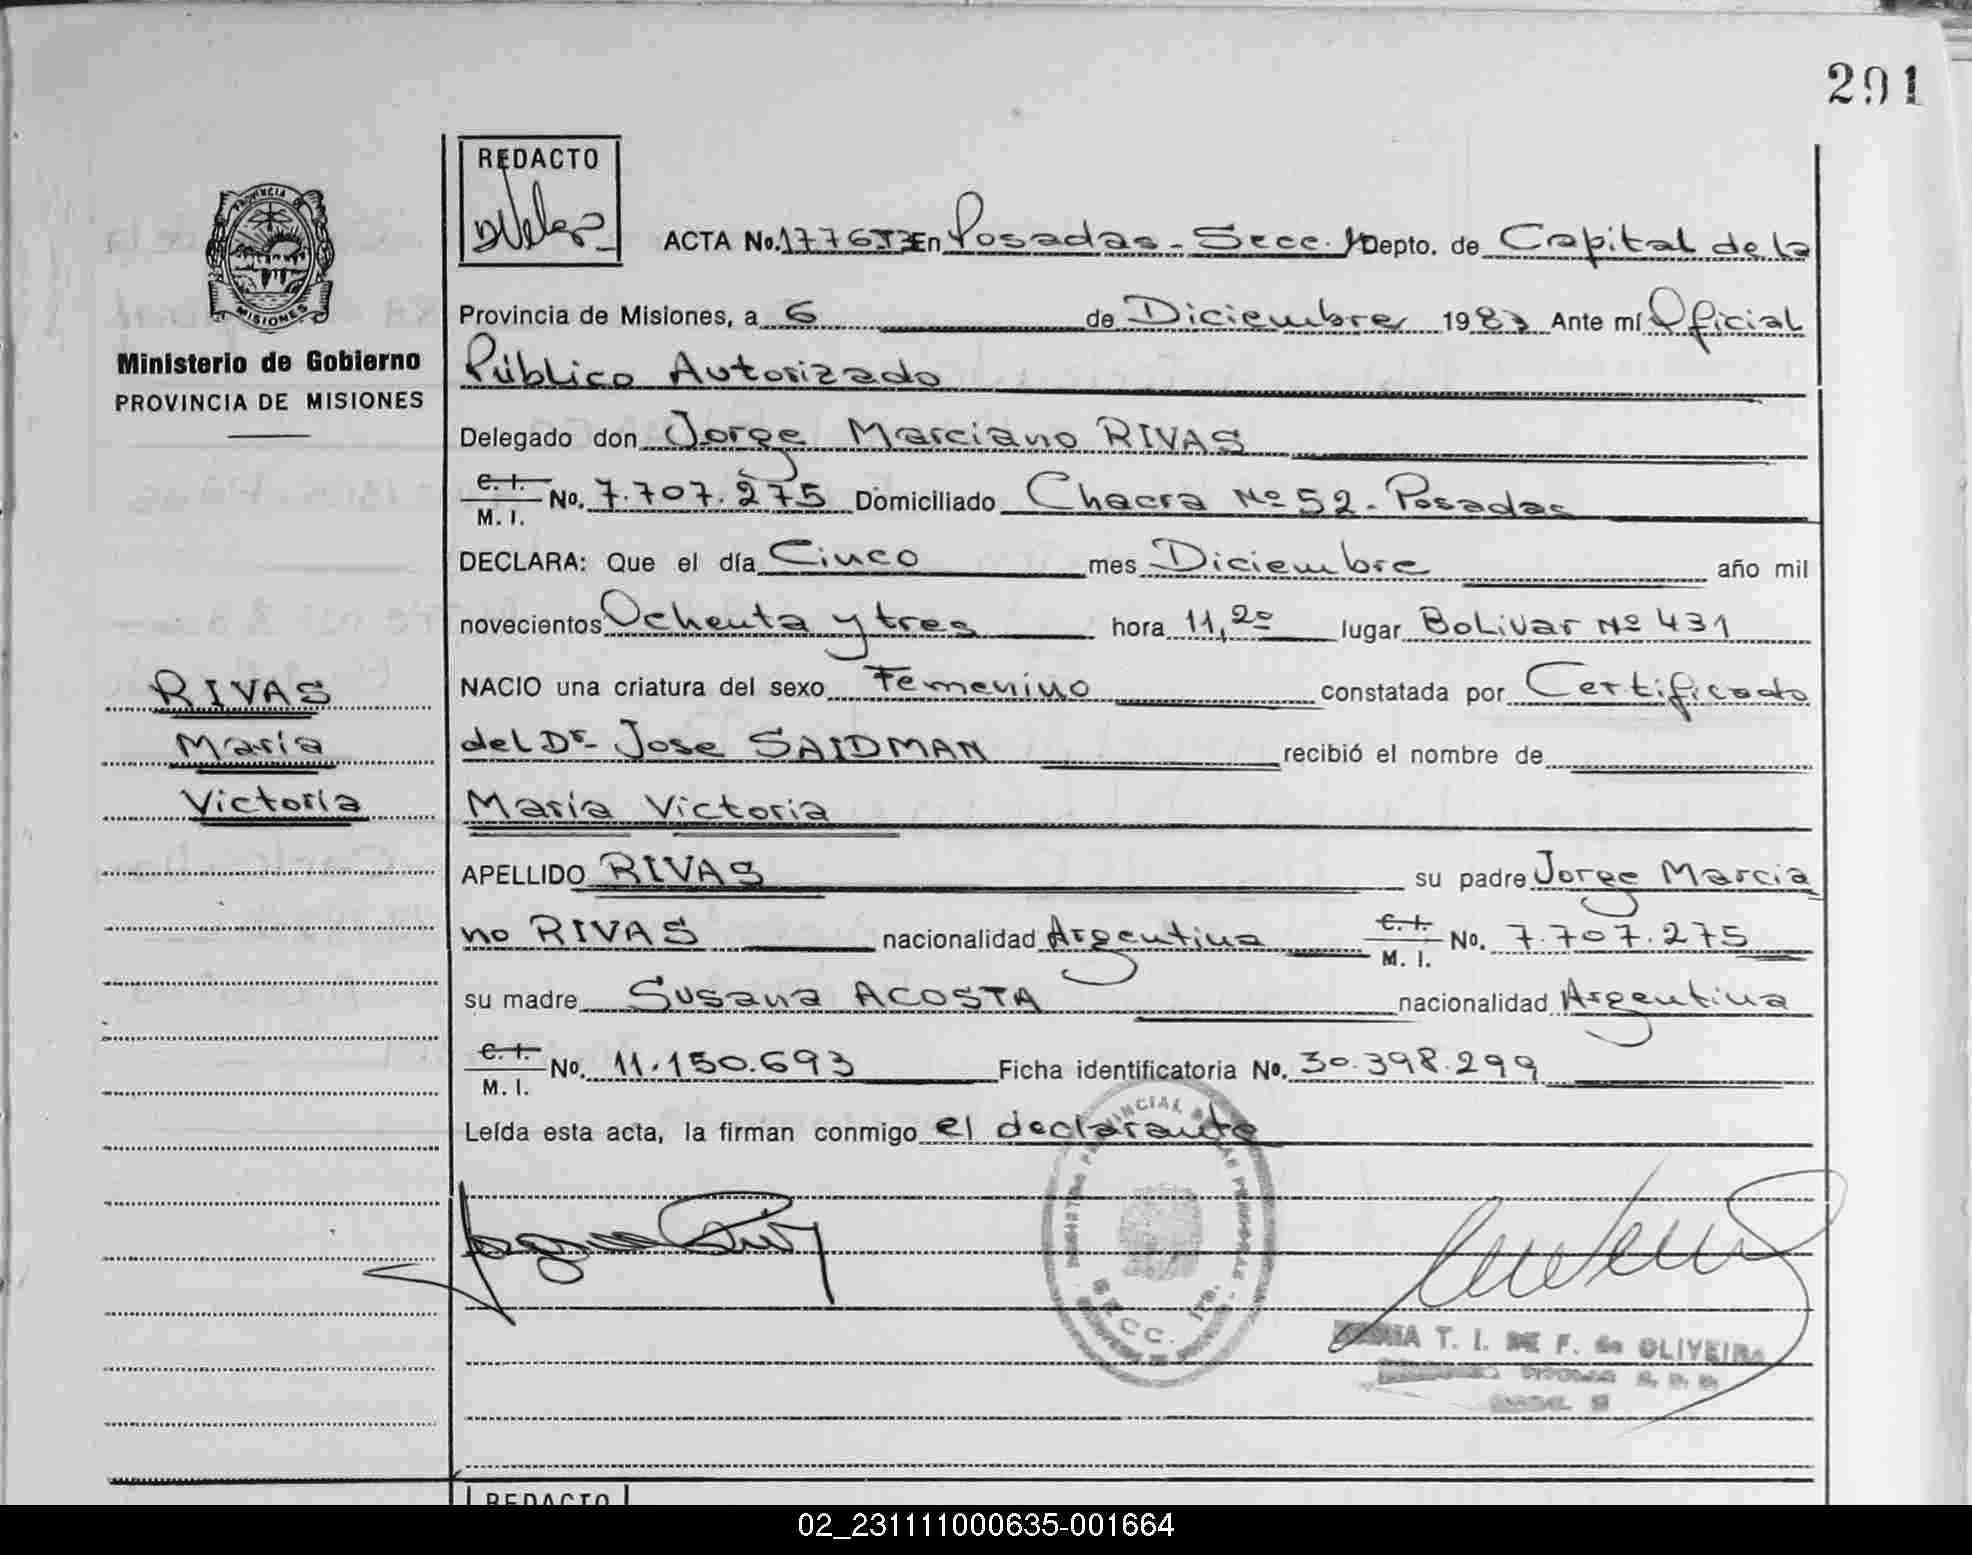 291
REDACTO
PROVINCIA DE
MISIONES
Ministerio de Gobierno
PROVINCIA DE MISIONES
ACTA No. 1776 En Posadas - Secc. Depto. de Capital de la
Provincia de Misiones, a 6 de Diciembre 1983 Ante mí Oficial
Público Autorizado
Delegado don Jorge Marciano RIVAS
C. I.
M. I. No. 7.707.275 Domiciliado Chacra Nº 52 - Posadas
DECLARA: Que el día Cinco mes Diciembre año mil
novecientos Ochenta y tres hora 11,20 lugar Bolivar Nº 431
NACIO una criatura del sexo Femenino constatada por Certificado
del Dr Jose SAIDMAN recibió el nombre de
María Victoria
RIVAS
María
Victoria
APELLIDO RIVAS su padre Jorge Marcia
no RIVAS nacionalidad Argentina C. I.
M. I. No. 7.707.275
su madre Susana ACOSTA nacionalidad Argentina
C. I.
M. I. No. 11.150.693 Ficha identificatoria No. 30.398.299
Leída esta acta, la firman conmigo el declarante
SECC. 1ra.
T. I. DE F. de OLIVEIRA
REDACTO
02_231111000635-001664